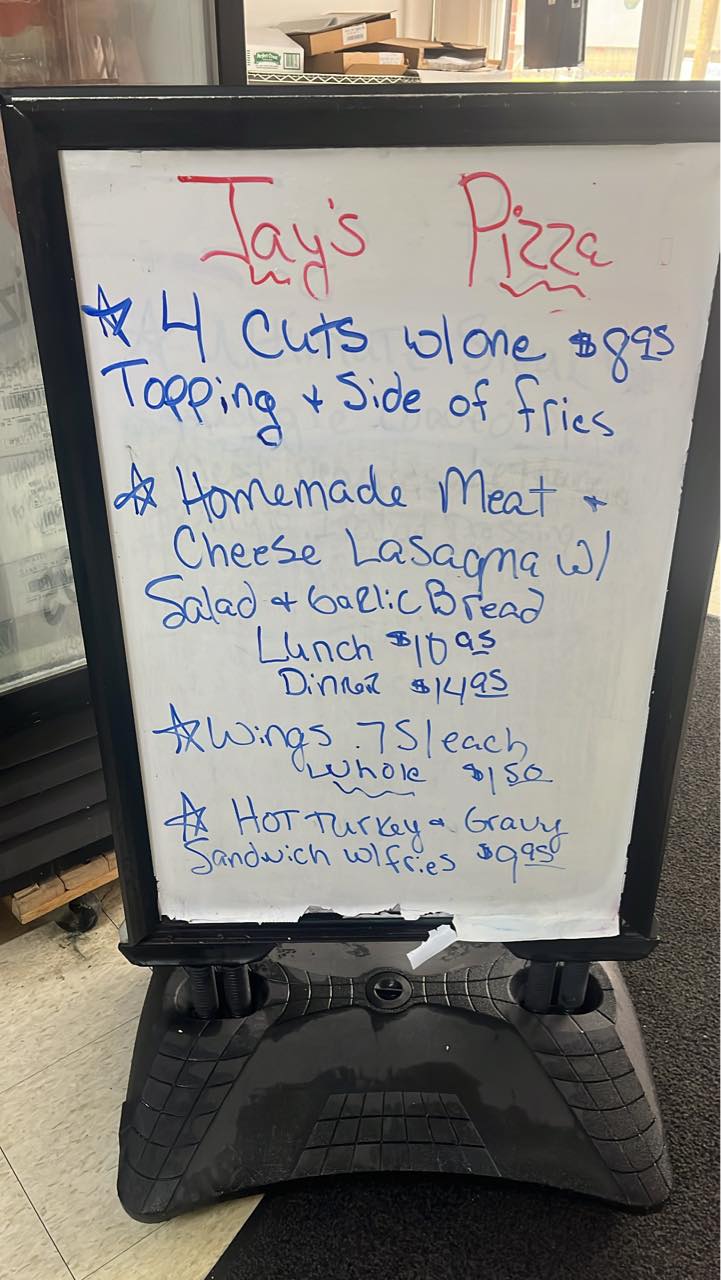 Jay's Pizza
☆ 4 Cuts w/one $8.95
Topping + Side of fries
☆ Homemade Meat +
Cheese Lasagna w/
Salad + Garlic Bread
Lunch $10.95
Dinner $14.95
☆ Wings .75/each
Whole $1.50
☆ Hot Turkey + Gravy
Sandwich w/fries $9.95